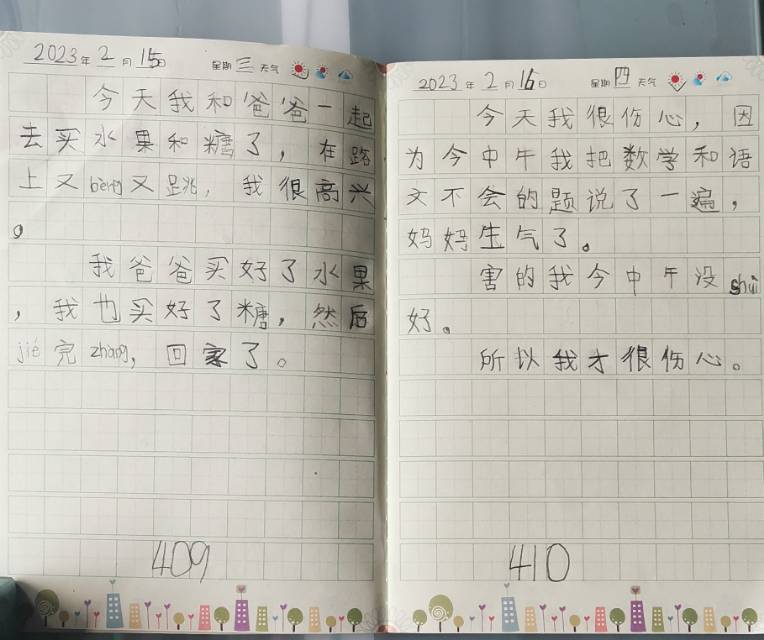 2023年2月15日 星期三 天气
今天我和爸爸一起
去买水果和糖了，在路
上又bèng又跳，我很高兴
。
我爸爸买好了水果
，我也买好了糖，然后
jié完zhàng，回家了。
409
2023年2月16日 星期四 天气
今天我很伤心，因
为今中午我把数学和语
文不会的题说了一遍，
妈妈生气了。
害的我今中午没shuì
好。
所以我才很伤心。
410